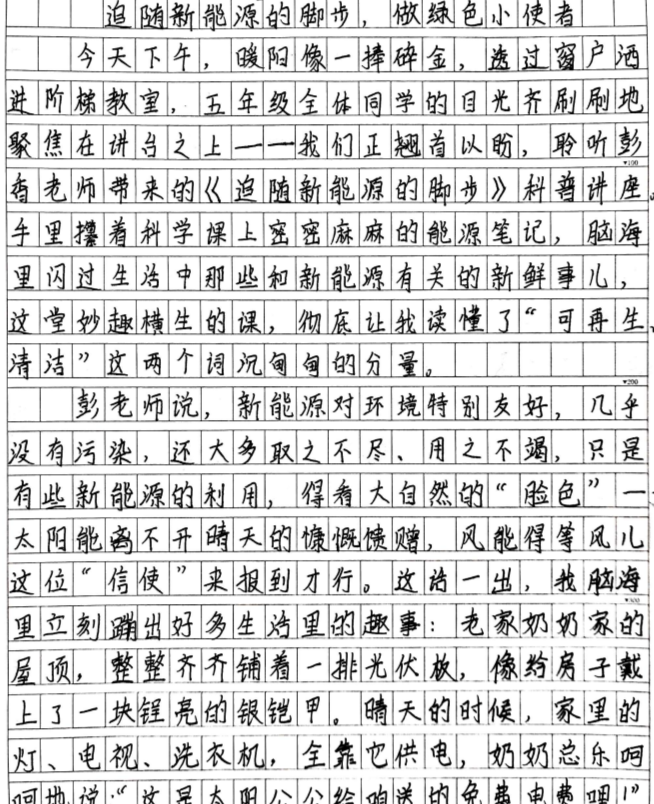 追随新能源的脚步，做绿色小使者
今天下午，暖阳像一捧碎金，透过窗户洒
进阶梯教室，五年级全体同学的目光齐刷刷地
聚焦在讲台之上——我们正翘首以盼，聆听彭
▼100
香老师带来的《追随新能源的脚步》科普讲座。
手里攥着科学课上密密麻麻的能源笔记，脑海
里闪过生活中那些和新能源有关的新鲜事儿，
这堂妙趣横生的课，彻底让我读懂了“可再生、
清洁”这两个词沉甸甸的分量。
▼200
彭老师说，新能源对环境特别友好，几乎
没有污染，还大多取之不尽、用之不竭，只是
有些新能源的利用，得看大自然的“脸色”—
太阳能离不开晴天的慷慨馈赠，风能得等风儿
这位“信使”来报到才行。这话一出，我脑海
▼300
里立刻蹦出好多生活里的趣事：老家奶奶家的
屋顶，整整齐齐铺着一排光伏板，像给房子戴
上了一块锃亮的银铠甲。晴天的时候，家里的
灯、电视、洗衣机，全靠它供电，奶奶总乐呵
呵地说：“这是太阳公公给咱送的免费电费呢！”